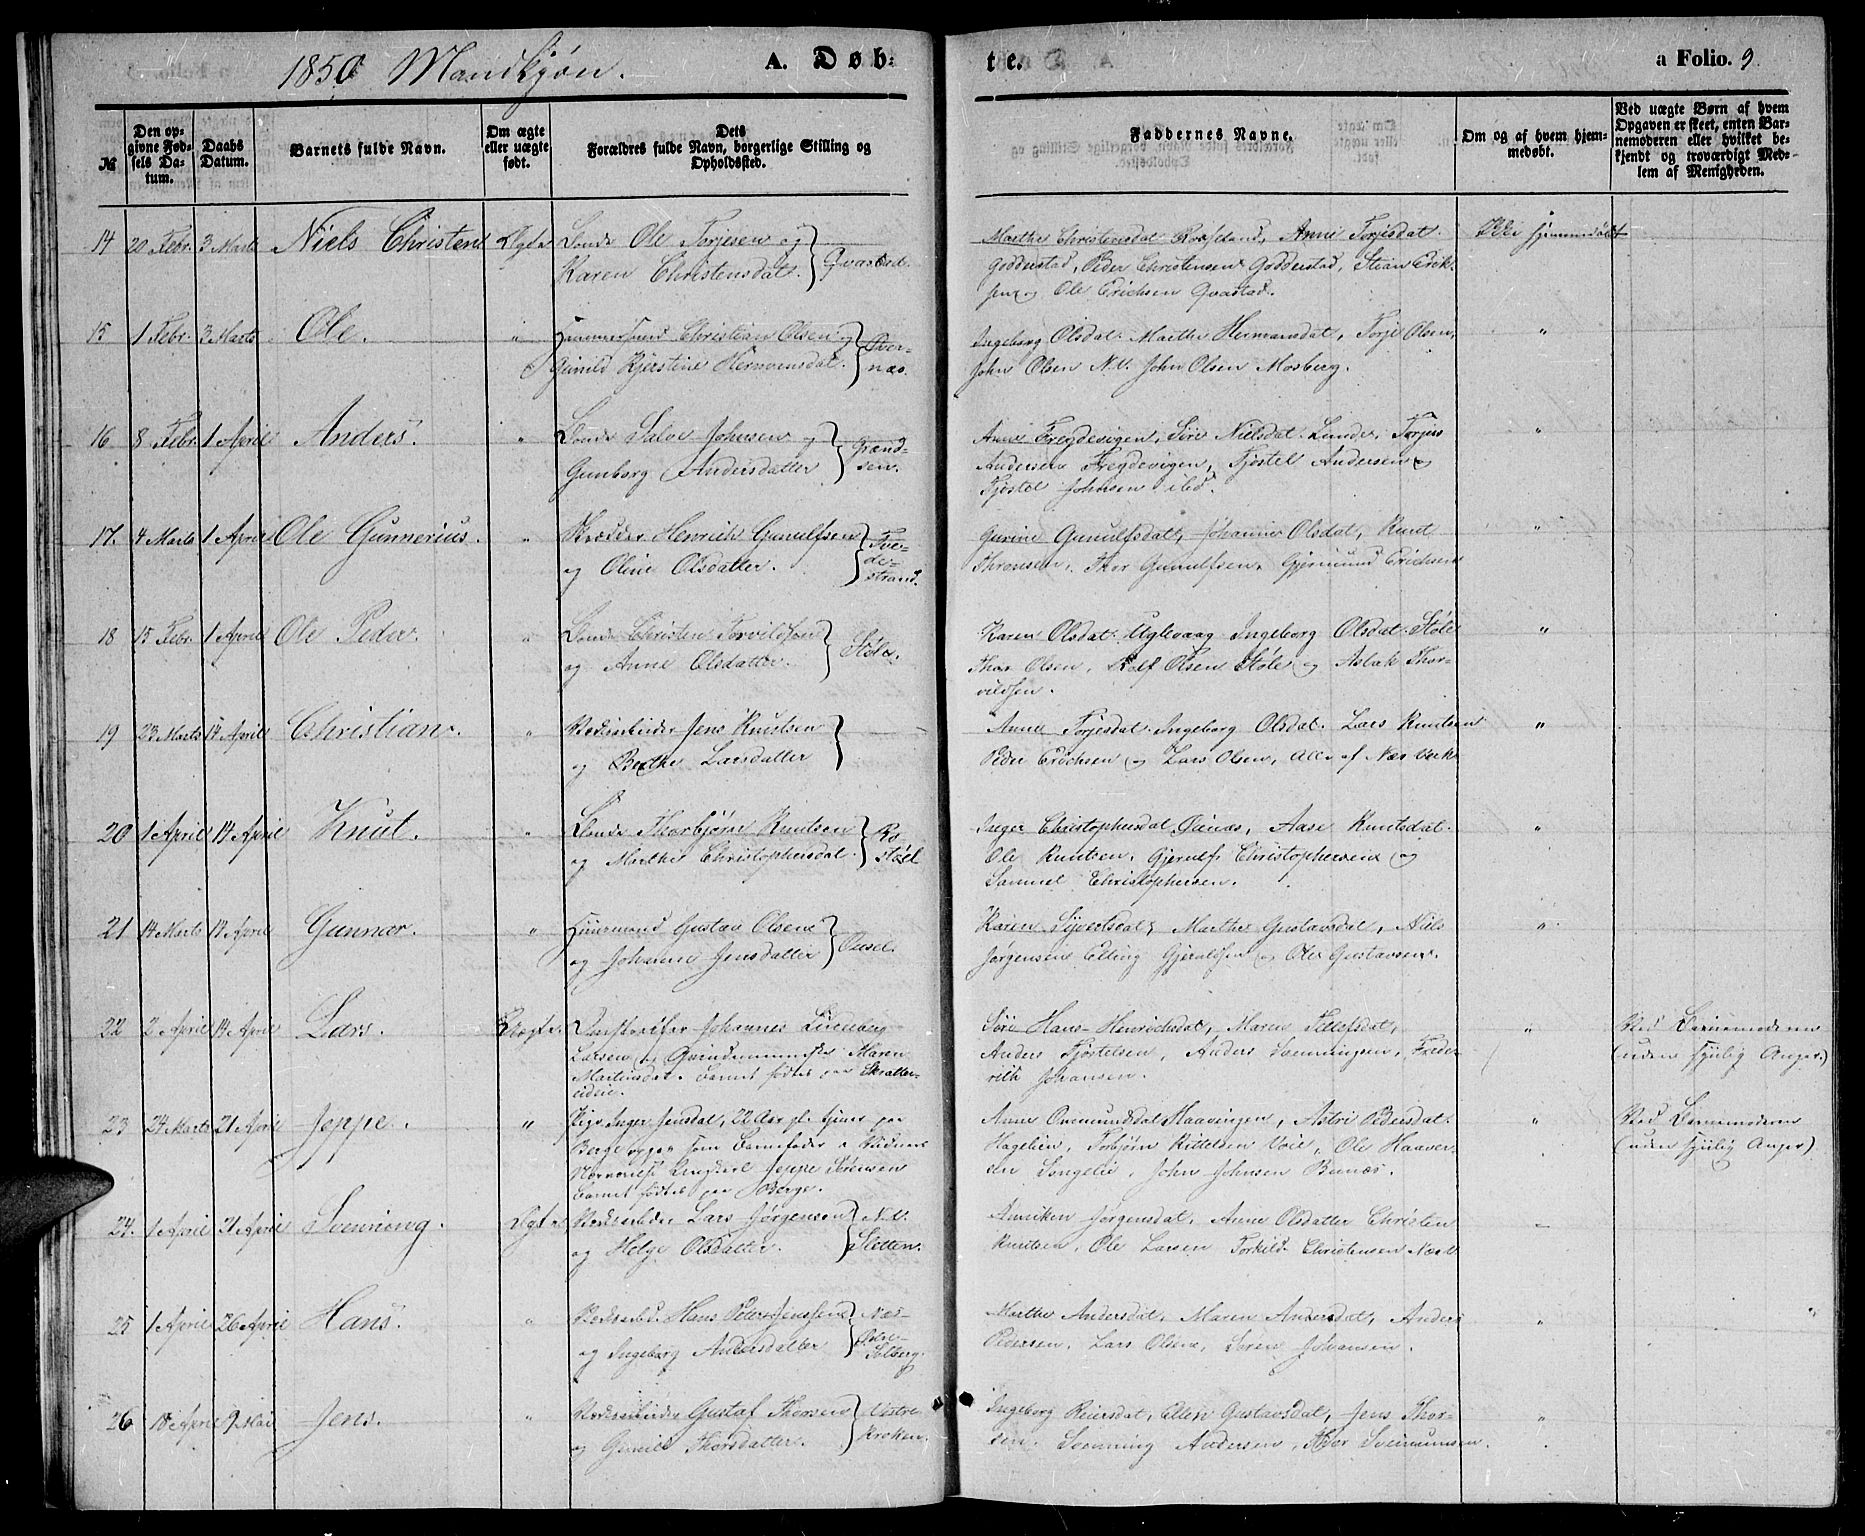 1850 Mandkjøn.
A. Døb-
te.
a Folio. 9.
№
Den op-
givne Fød-
sels Da-
tum.
Daabs
Datum.
Barnets fulde Navn.
Om ægte
eller uægte
født.
Dets
Forældres fulde Navn, borgerlige Stilling og
Opholdssted.
Faddernes Navne.
Om og af hvem hjem-
medøbt.
Ved uægte Børn af hvem
Opgaven er skeet, enten Bar-
nemoderen eller hvilket be-
kjendt og troværdigt Med-
lem af Menigheden.
14 20 Febr. 3 Marts Niels Christen Ægte Bonde Ole Torjesen og
Karen Christensdat. Qvastad.
Marthe Christensdat Roseland, Anne Torjesdat.
Godderstad, Peder Christensen Godderstad, Stian Erik-
sen og Ole Erichsen Qvastad.
Ikke hjemmedøbt
15 1 Febr. 3 Marts Ole. " Christian Olsen og
Gunild Kjerstine Hermansdat. Over-
næs.
Ingeborg Olsdat. Marthe Hermansdat, Torje Olsen,
John Olsen N.V. John Olsen Mosberg.
"
16 8 Febr. 1 April Anders. " Bonde Salve Johnsen og
Gunborg Andersdatter
Anne Fregdevigen, Siri Nielsdat. Lunde, Torjus
Andersen Fregdevigen, Tjøstel Andersen og
Tjøstel Johnsen ibd.
"
17. 4 Marts 1 April Ole Gunnerius. " Skrædder Henrich Gunulfsen
og Oline Olsdatter. Tve-
de-
strand.
Gurine Gunulfsdat, Johanne Olsdat, Knud
Thronsen, Thor Gunulfsen, Gjermund Erichsen
"
18 15 Febr. 1 April Ole Peder. " Bonde Christen Torvildsen
og Anne Olsdatter. Støle.
Karen Olsdat. Uglevaag Ingeborg Olsdat. Støle
Thor Olsen, Rolf Olsen Støle og Aslak Thor-
vildsen.
"
19 23 Marts 14 April Christian. " Værksarbeider Jens Knutsen
og Berthe Larsdatter
Anne Torjesdat. Ingeborg Olsdat. Lars Knutsen
Peder Erichsen og Lars Olsen, alle af Næs Værk
"
20 1 April 14 April Knut. " Bonde Thorbjørn Knutsen
og Marthe Christophersdat. Ro-
støel
Inger Christophersdat Øinæs, Aase Knutsdat.
Ole Knutsen, Gjerulf Christophersen og
Samuel Christophersen.
"
21 14 Marts 14 April Gunnar. " Huusmand Gustav Olsen
og Johanne Jensdatter Ousel.
Karen Syvertsdat, Marthe Gustavsdat, Niels
Jørgensen Elling Gjerulfsen og Ole Gustavsen.
"
22 2 April 14 April Lars. Uægte. Johannes Luneberg
Larsen og Qvindemenneske Maren
Martinsdat. Barnet født paa Skratter-
eidie.
Siri Hans-Henrichsdat, Maren Tellefsdat,
Anders Tjøstelsen, Anders Svenningsen, Frede-
rich Johansen.
"
Ved Barnemoderen
(uden synlig Anger.)
23 24 Marts 21 April Jeppe. " Pige Inger Jensdat, 22 Aar gl. tjener paa
Berge opgav som Barnefader i Vidners
Nærværelse Ungkarl Jeppe Sørensen
Barnet født paa Berge.
Anne Omundsdal Haavingen, Astri Pedersdat.
Hageleien, Torbjørn Kittelsen Veie, Ole Haaver-
sen Songelie, John Johnsen Bunæs.
"
Ved Barnemoderen
(uden synlig Anger)
24. 1 April 21 April Svenning. Ægte Værksarbeider Lars Jørgensen
og Helge Olsdatter. N.V.
Sletten.
Anniken Jørgensdat, Anne Olsdatter Christen
Knutsen, Ole Larsen Torkild Christensen Næs V.
25 1 April 26 April Hans. " Værksarbd. Hans Peter Jensen
og Ingeborg Andersdatter Næs-
Østre-
Solberg.
Marthe Andersdat, Maren Andersdat, Anders
Pedersen, Lars Olsen, Søren Johansen.
"
26 18 April 9 Mai Jens. " Værksarbeider Gustaf Thorsen
og Gunild Thorsdatter. Vestre
Kroken.
Ingeborg Reiersdat, Ellen Gustavsdat, Jens Thor-
sen, Svenning Andersen, Thor Sveinunsen.
"